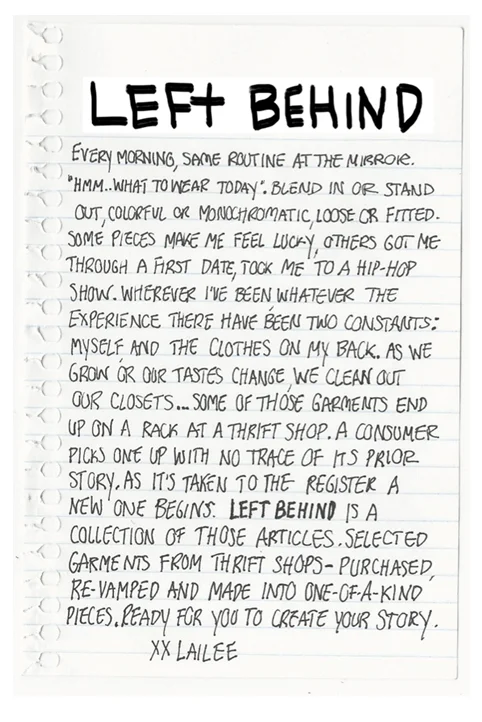 LEFT BEHIND
EVERY MORNING, SAME ROUTINE AT THE MIRROR.
"HMM..WHAT TO WEAR TODAY". BLEND IN OR STAND
OUT, COLORFUL OR MONOCHROMATIC, LOOSE OR FITTED.
SOME PIECES MAKE ME FEEL LUCKY, OTHERS GOT ME
THROUGH A FIRST DATE, TOOK ME TO A HIP-HOP
SHOW. WHEREVER I'VE BEEN, WHATEVER THE
EXPERIENCE THERE HAVE BEEN TWO CONSTANTS:
MYSELF AND THE CLOTHES ON MY BACK. AS WE
GROW OR OUR TASTES CHANGE, WE CLEAN OUT
OUR CLOSETS... SOME OF THOSE GARMENTS END
UP ON A RACK AT A THRIFT SHOP. A CONSUMER
PICKS ONE UP WITH NO TRACE OF ITS PRIOR
STORY. AS IT'S TAKEN TO THE REGISTER A
NEW ONE BEGINS. LEFT BEHIND IS A
COLLECTION OF THOSE ARTICLES. SELECTED
GARMENTS FROM THRIFT SHOPS- PURCHASED,
RE-VAMPED AND MADE INTO ONE-OF-A-KIND
PIECES. READY FOR YOU TO CREATE YOUR STORY.
XX LAILEE